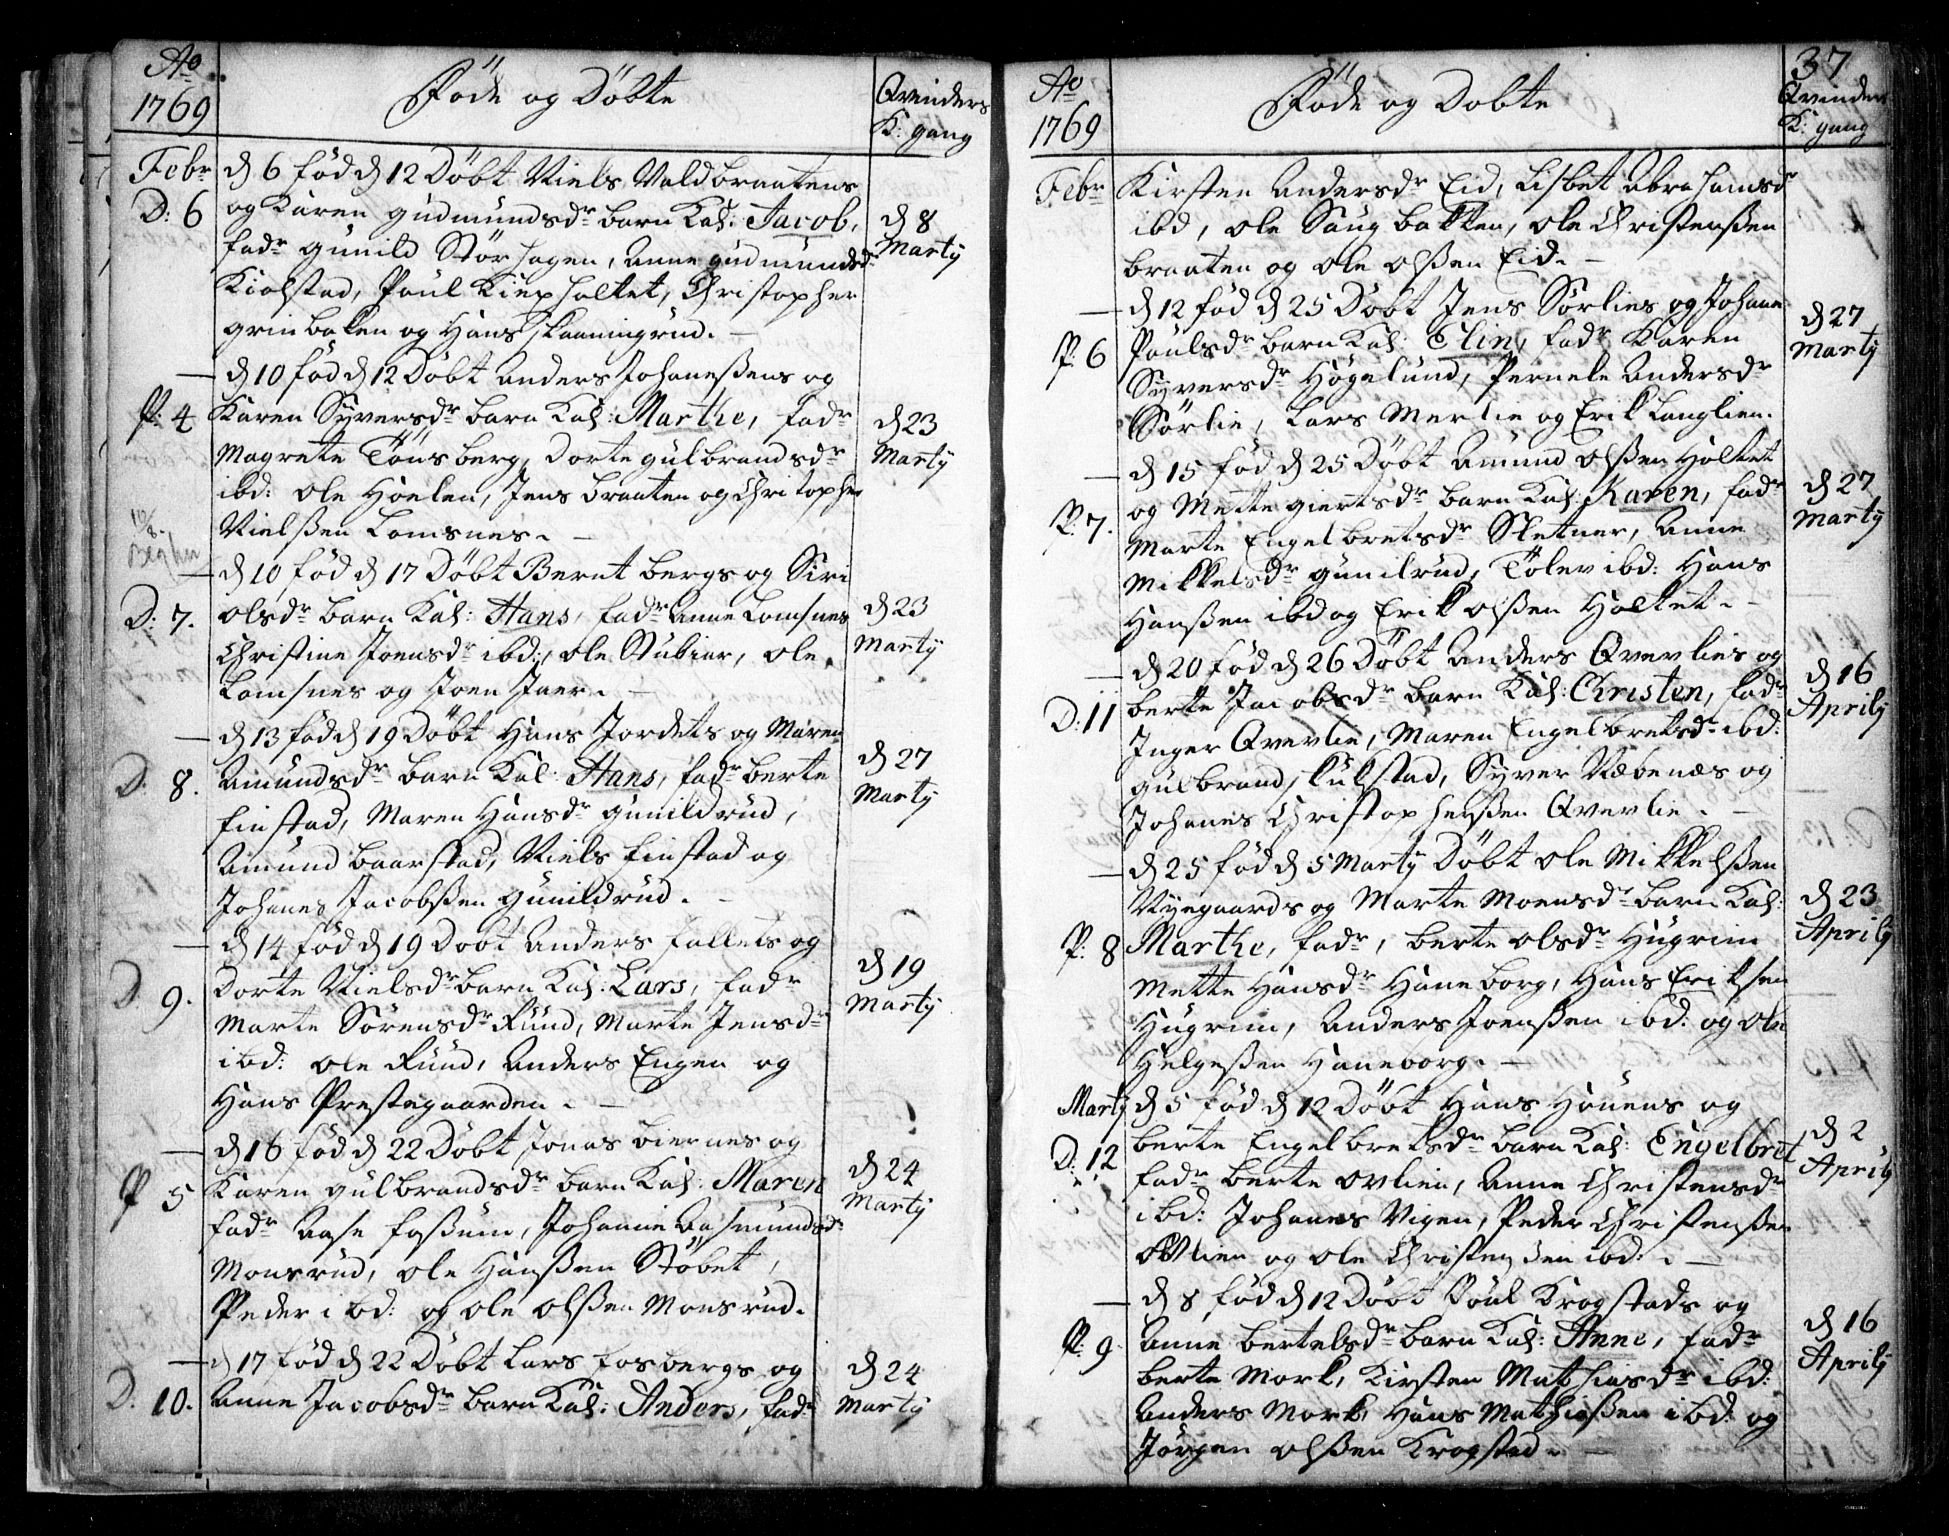 Ao
1769
Föde og Döbte
Qvinders
K: gang
Febr
D: 6
d 6 född d 12 Döbt Niels Valdbraatens
og Karen Gudmundsdr barn Kal: Jacob,
fadr Gunild Störhagen, Anne Gudmundsdr
Kiolstad, Poul Kiepholtet, Christopher
Grinbaken og Hans Skaaningrud. —
d 8
Marty
— d 10 föd d 12 Döbt Anders Johanesßens og
P: 4
Karen Syversdr barn Kal: Marthe, fadr
Magrete Tönsberg, Dorte Gulbrandsdr
ibd: Ole Hoelen, Jens Braaten og Christopher
Nielßen Lomsnes. —
d 23
Marty
— d 10 föd d 17 Döbt Bernt Bergs og Siri
D: 7.
Olsdr barn Kal: Hans, fadr Anne Lomsnes
Christine Joensdr ibd:, Ole Stubier, Ole
Lomsnes og Joen Jaer. —
d 23
Marty
— d 13 föd d 19 Döbt Hans Jordets og Maren
D. 8.
Amundsdr barn Kal: Hans, fadr Berte
Finstad, Maren Hansdr Gunildrud,
Amund Baarstad, Niels Finstad og
Johanes Jacobßen Gunildrud. —
d 27
Marty
— d 14 föd d 19 Dobt Anders Fallets og
D. 9.
Dorte Nielsdr barn Kal: Lars, fadr
Marte Sörensdr Ruud, Marte Jensdr
ibd: Ole Ruud, Anders Engen og
Hans Prestegaarden. —
d 19
Marty
— d 16 föd d 22 Döbt Jonas Biernes og
P 5
Karen Gulbrandsdr barn Kal: Maren
fadr Aase Foßum, Johanne Aasmundsdr
Monsrud, Ole Hansßen Stöbet,
Peder ibd: og Ole Olßen Monsrud.
d 24
Marty
— d 17 föd d 22 Döbt Lars Fosbergs og
D. 10.
Anne Jacobsdr barn Kal: Anders, fadr
d 24
Marty
Ao
1769
Föde og Dobte
37
Qvinders
K: gang
Febr
Kirsten Andersdr Eid, Lisbet Abrahamsdr
ibd, Ole Haugbakken, Ole Christensßen
Braaten og Ole Olßen Eid. —
— d 12 föd d 25 Döbt Jens Sörlies og Johane
P. 6
Poulsdr barn Kal: Elin, fadr Karen
Syversdr Högelund, Pernele Andersdr
Sörlie, Lars Merlie og Erik Langlien.
d 27
Marty
— d 15 föd d 25 Döbt Amund Olßen Holtet
P. 7.
og Mette Giertsdr barn Kal: Karen, fadr
Marte Engelbretsdr Sletner, Anne
Mikkelsdr Gunilrud, Tölev ibd: Hans
Hansßen ibd og Erik Olßen Holtet. —
d 27
Marty
— d 20 föd d 26 Döbt Anders Qvevlies og
D. 11
Berte Jacobsdr barn Kal: Christen, fadr
Inger Qvevlie, Maren Engelbretsdr ibd:
Gulbrand Kulstad, Syver Næbenæs og
Johanes Christophersßen Qvevlie. —
d 16
Aprily
— d 25 föd d 5 Marty Döbt Ole Mikkelßen
Nyegaards og Marte Moensdr barn Kal:
P. 8
Marthe, fadr, Berte Olsdr Hugrim
Mette Hansdr Haneborg, Hans Eriksen
Hugrim, Anders Joensßen ibd: og Ole
Helgesßen Haneborg. —
d 23
Aprily
Marty d 5 föd d 12 Döbt Hans Houens og
D: 12
Berte Engelbretsdr barn Kal: Engelbret
fadr Berte Ovlien, Anne Christensdr
ibd: Johanes Vigen, Peder Christensßen
Ovlien og Ole Christensen ibd: . —
d 2
Aprily
— d 8 föd d 12 Döbt Poul Krogstads og
P. 9
Anne Bertelsdr barn Kal: Anne, fadr
Berte Mork, Kirsten Mathiasdr ibd:
Anders Mork, Hans Mathiesßen ibd: og
Jörgen Olßen Krogstad. —
d 16
Aprily